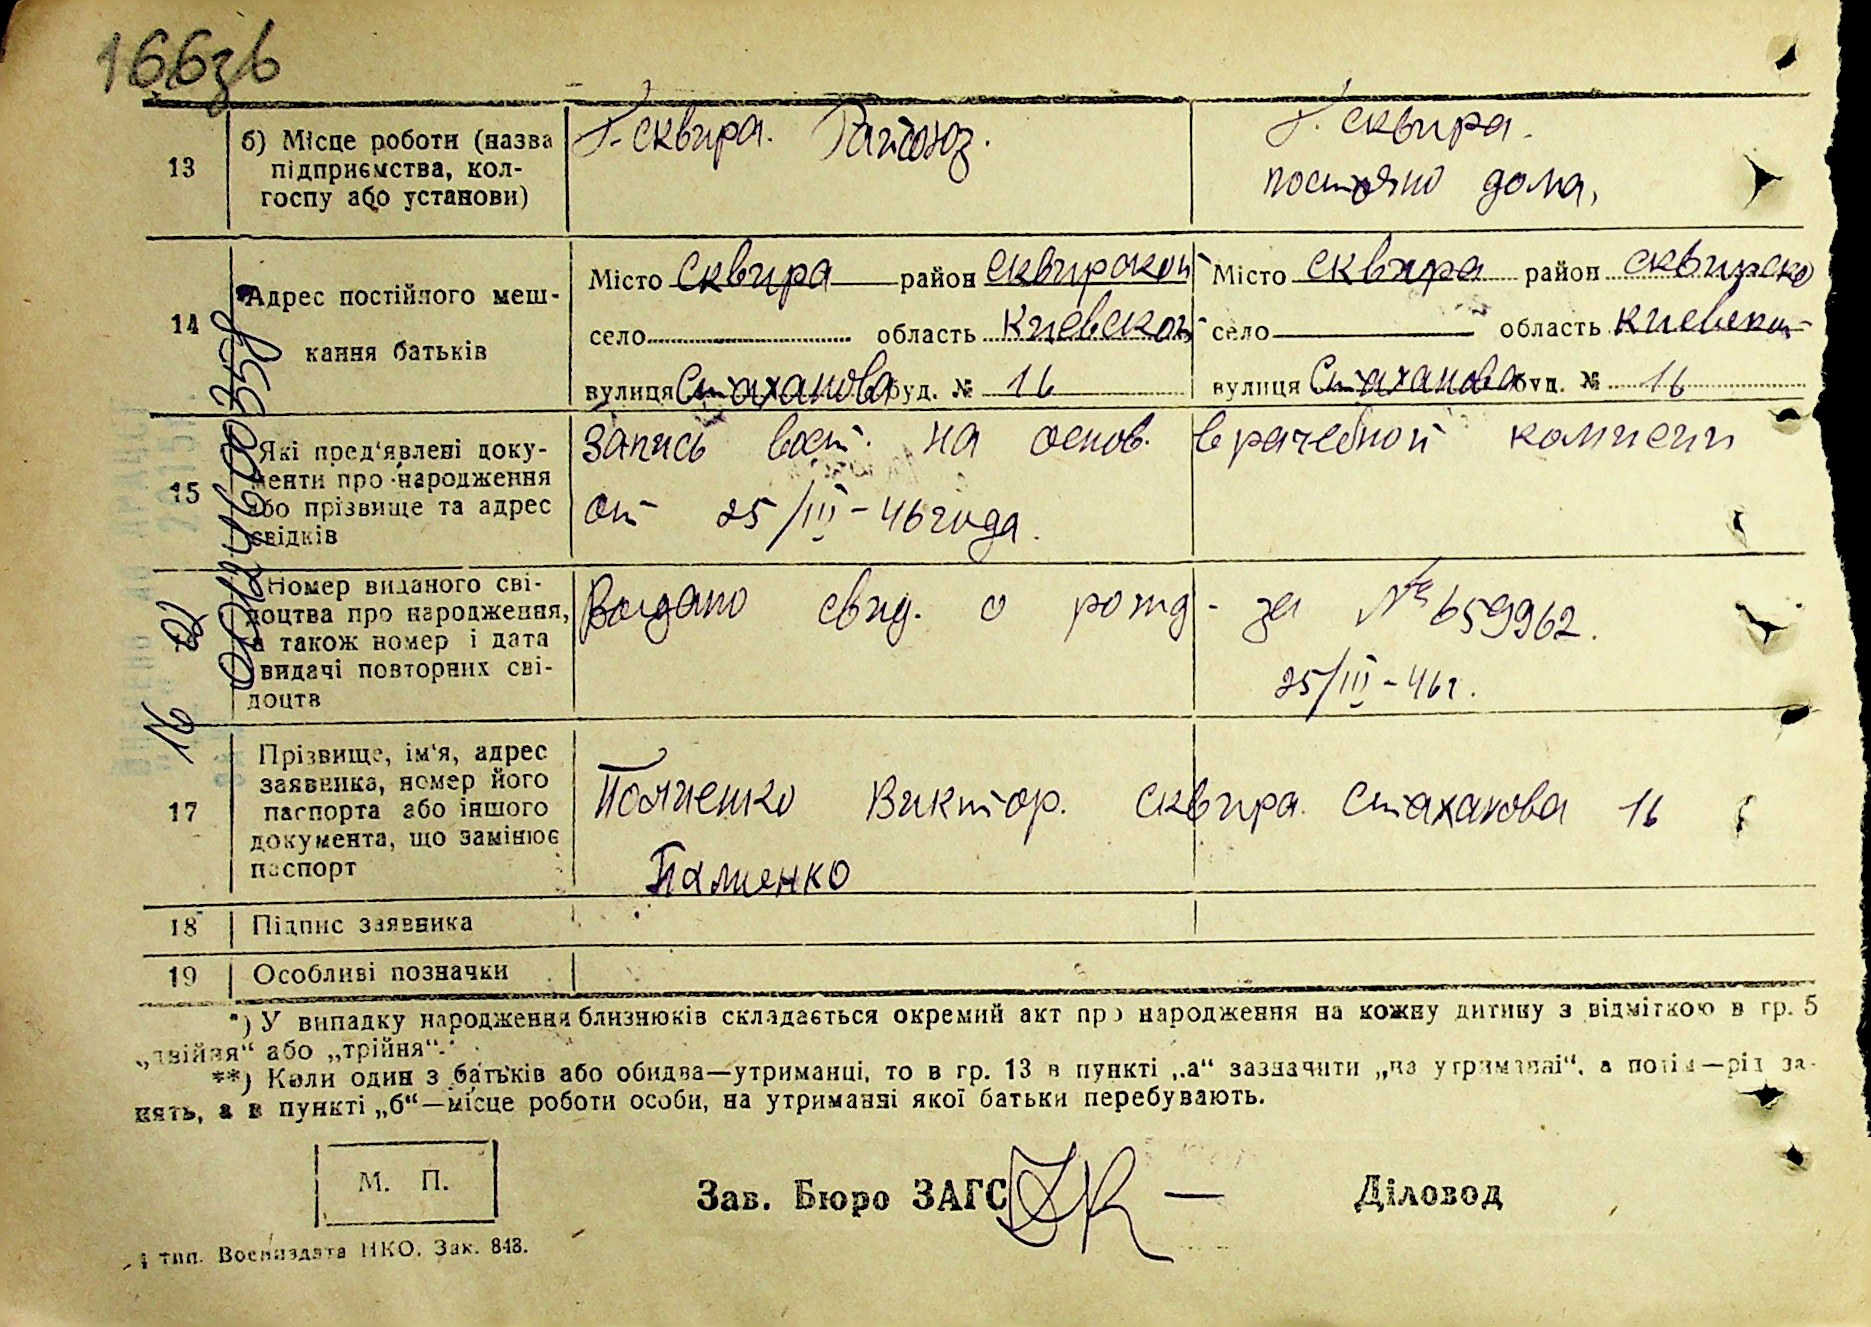 166зв
13
б) Місце роботи (назва
підприємства, кол-
госпу або установи)
г. Сквира. Райсоюз.
г. Сквира.
постояно дома,
14
Адрес постійного меш-
кання батьків
Місто Сквира район Сквирской
село область Киевской
вулиця Стаханова буд. № 16
Місто Сквира район Сквирско
село область Киевской
вулиця Стаханова буд. № 16
15
Які пред'явлені доку-
менти про народження
або прізвище та адрес
свідків
Запись вост. на основ. врачебной комисии
от 25/III-46 года.
Номер виданого сві-
доцтва про народження,
а також номер і дата
видачі повторних сві-
доцтв
Выдано свид. о рожд- за № 659962.
25/III-46 г.
16
17
Прізвище, ім'я, адрес
заявника, номер його
паспорта або іншого
документа, що замінює
паспорт
Виктор. Сквира. Стаханова 16
18
Підпис заявника
19
Особливі позначки
*) У випадку народження близнюків складається окремий акт про народження на кожну дитину з відміткою в гр. 5
„двійня“ або „трійня“.
**) Коли один з батьків або обидва—утриманці, то в гр. 13 в пункті „а“ зазначити „на утриманні“, а потім—рід за-
нять, а в пункті „б“—місце роботи особи, на утриманні якої батьки перебувають.
М. П.
Зав. Бюро ЗАГС
Діловод
тип. Воениздата НКО. Зак. 843.